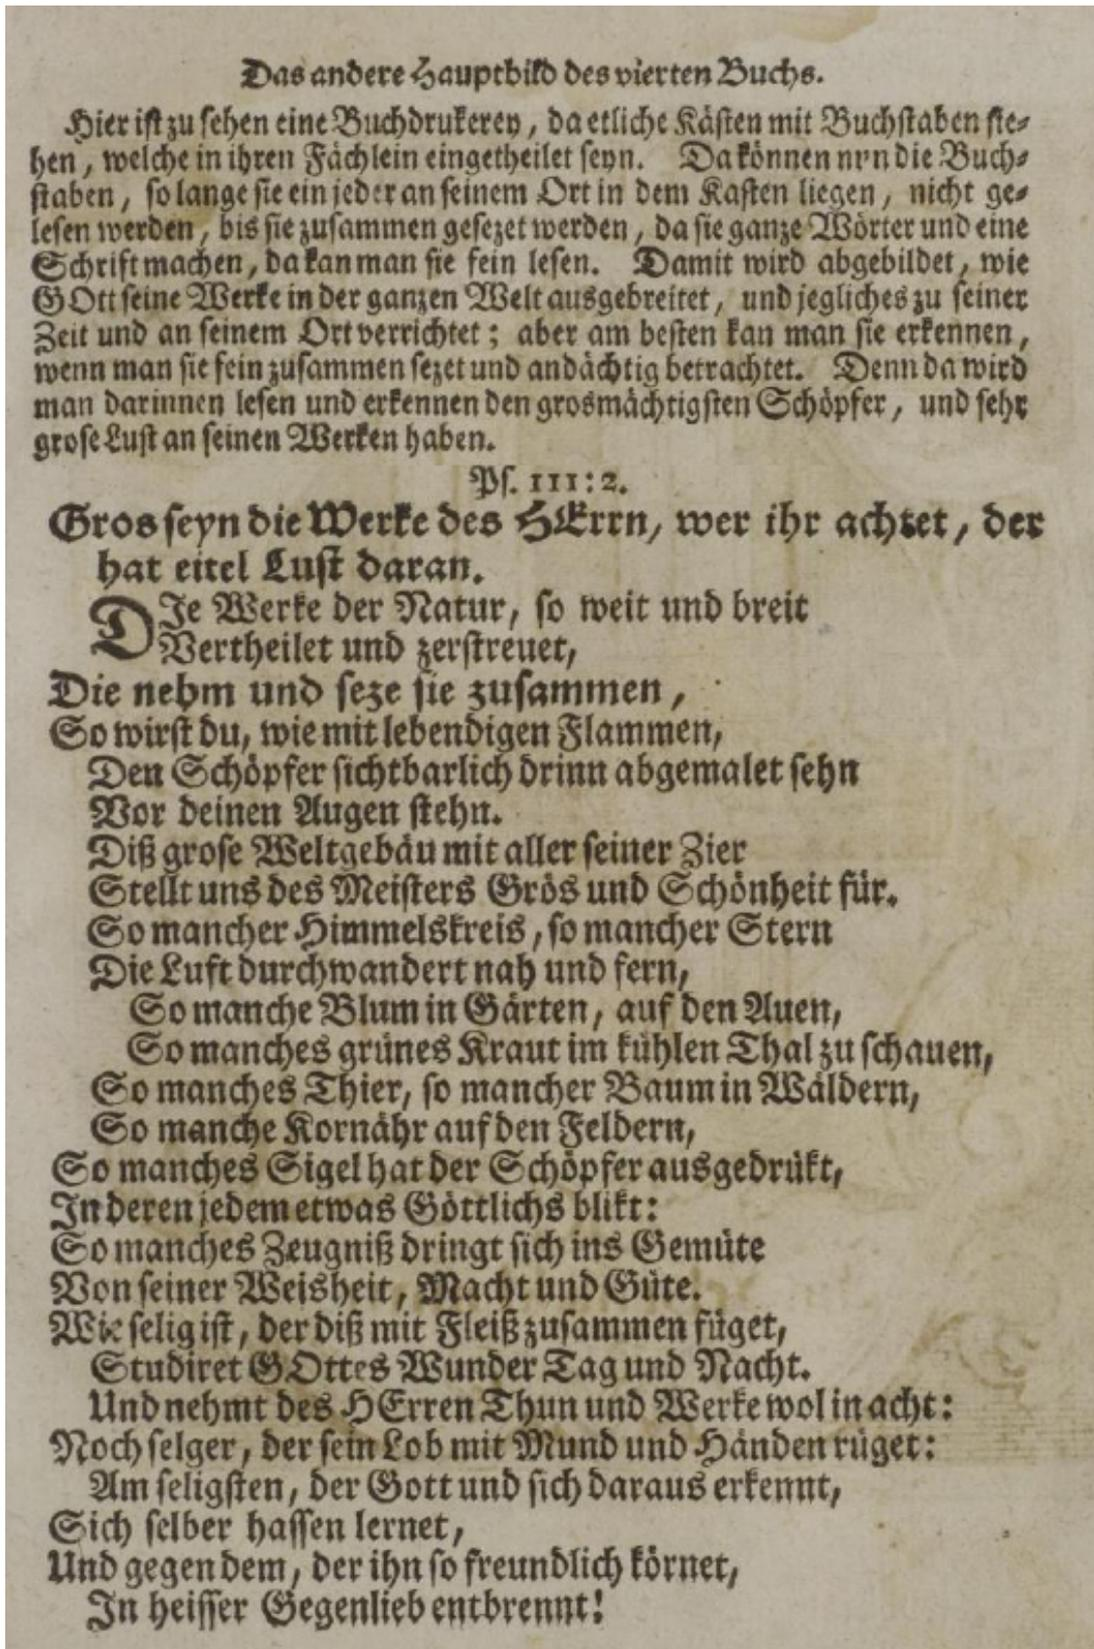 Das andere Hauptbild des vierten Buchs.
Hier ist zu sehen eine Buchdrukerey, da etliche Kästen mit Buchstaben ste-
hen, welche in ihren Fächlein eingetheilet seyn. Da können nun die Buch-
staben, so lange sie ein jeder an seinem Ort in dem Kasten liegen, nicht ge-
lesen werden, bis sie zusammen gesezet werden, da sie ganze Wörter und eine
Schrift machen, da kan man sie fein lesen. Damit wird abgebildet, wie
GOtt seine Werke in der ganzen Welt ausgebreitet, und jegliches zu seiner
Zeit und an seinem Ort verrichtet; aber am besten kan man sie erkennen,
wenn man sie fein zusammen sezet und andächtig betrachtet. Denn da wird
man darinnen lesen und erkennen den grosmächtigsten Schöpfer, und sehr
grose Lust an seinen Werken haben.
Ps. 111:2.
Gros seyn die Werke des HErrn, wer ihr achtet, der
hat eitel Lust daran.
DIe Werke der Natur, so weit und breit
Vertheilet und zerstreuet,
Die nehm und seze sie zusammen,
So wirst du, wie mit lebendigen Flammen,
Den Schöpfer sichtbarlich drinn abgemalet sehn
Vor deinen Augen stehn.
Diß grose Weltgebäu mit aller seiner Zier
Stellt uns des Meisters Grös und Schönheit für.
So mancher Himmelskreis, so mancher Stern
Die Luft durchwandert nah und fern,
So manche Blum in Gärten, auf den Auen,
So manches grünes Kraut im kühlen Thal zu schauen,
So manches Thier, so mancher Baum in Wäldern,
So manche Kornähr auf den Feldern,
So manches Sigel hat der Schöpfer ausgedrükt,
In deren jedem etwas Göttlichs blikt:
So manches Zeugniß dringt sich ins Gemüte
Von seiner Weisheit, Macht und Güte.
Wie selig ist, der diß mit Fleiß zusammen füget,
Studiret GOttes Wunder Tag und Nacht.
Und nehmt des HErren Thun und Werke wol in acht:
Noch selger, der sein Lob mit Mund und Händen rüget:
Am seligsten, der Gott und sich daraus erkennt,
Sich selber hassen lernet,
Und gegen dem, der ihn so freundlich körnet,
In heisser Gegenlieb entbrennt!